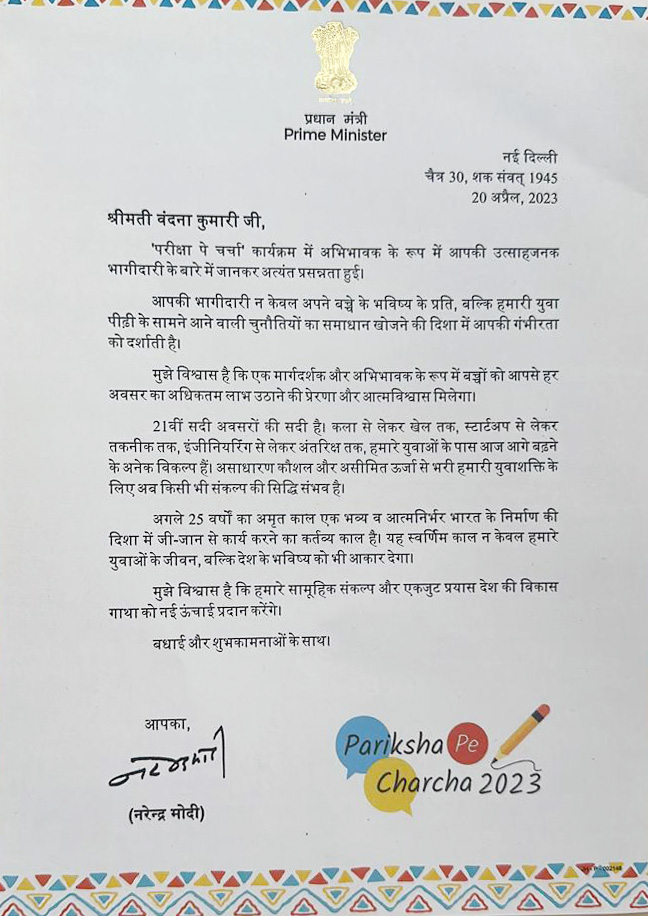 प्रधान मंत्री
Prime Minister
नई दिल्ली
चैत्र 30, शक संवत् 1945
20 अप्रैल, 2023
श्रीमती वंदना कुमारी जी,
'परीक्षा पे चर्चा' कार्यक्रम में अभिभावक के रूप में आपकी उत्साहजनक
भागीदारी के बारे में जानकर अत्यंत प्रसन्नता हुई।
आपकी भागीदारी न केवल अपने बच्चे के भविष्य के प्रति, बल्कि हमारी युवा
पीढ़ी के सामने आने वाली चुनौतियों का समाधान खोजने की दिशा में आपकी गंभीरता
को दर्शाती है।
मुझे विश्वास है कि एक मार्गदर्शक और अभिभावक के रूप में बच्चों को आपसे हर
अवसर का अधिकतम लाभ उठाने की प्रेरणा और आत्मविश्वास मिलेगा।
21वीं सदी अवसरों की सदी है। कला से लेकर खेल तक, स्टार्टअप से लेकर
तकनीक तक, इंजीनियरिंग से लेकर अंतरिक्ष तक, हमारे युवाओं के पास आज आगे बढ़ने
के अनेक विकल्प हैं। असाधारण कौशल और असीमित ऊर्जा से भरी हमारी युवाशक्ति के
लिए अब किसी भी संकल्प की सिद्धि संभव है।
अगले 25 वर्षों का अमृत काल एक भव्य व आत्मनिर्भर भारत के निर्माण की
दिशा में जी-जान से कार्य करने का कर्तव्य काल है। यह स्वर्णिम काल न केवल हमारे
युवाओं के जीवन, बल्कि देश के भविष्य को भी आकार देगा।
मुझे विश्वास है कि हमारे सामूहिक संकल्प और एकजुट प्रयास देश की विकास
गाथा को नई ऊंचाई प्रदान करेंगे।
बधाई और शुभकामनाओं के साथ।
आपका,
(नरेन्द्र मोदी)
Pariksha Pe
Charcha 2023